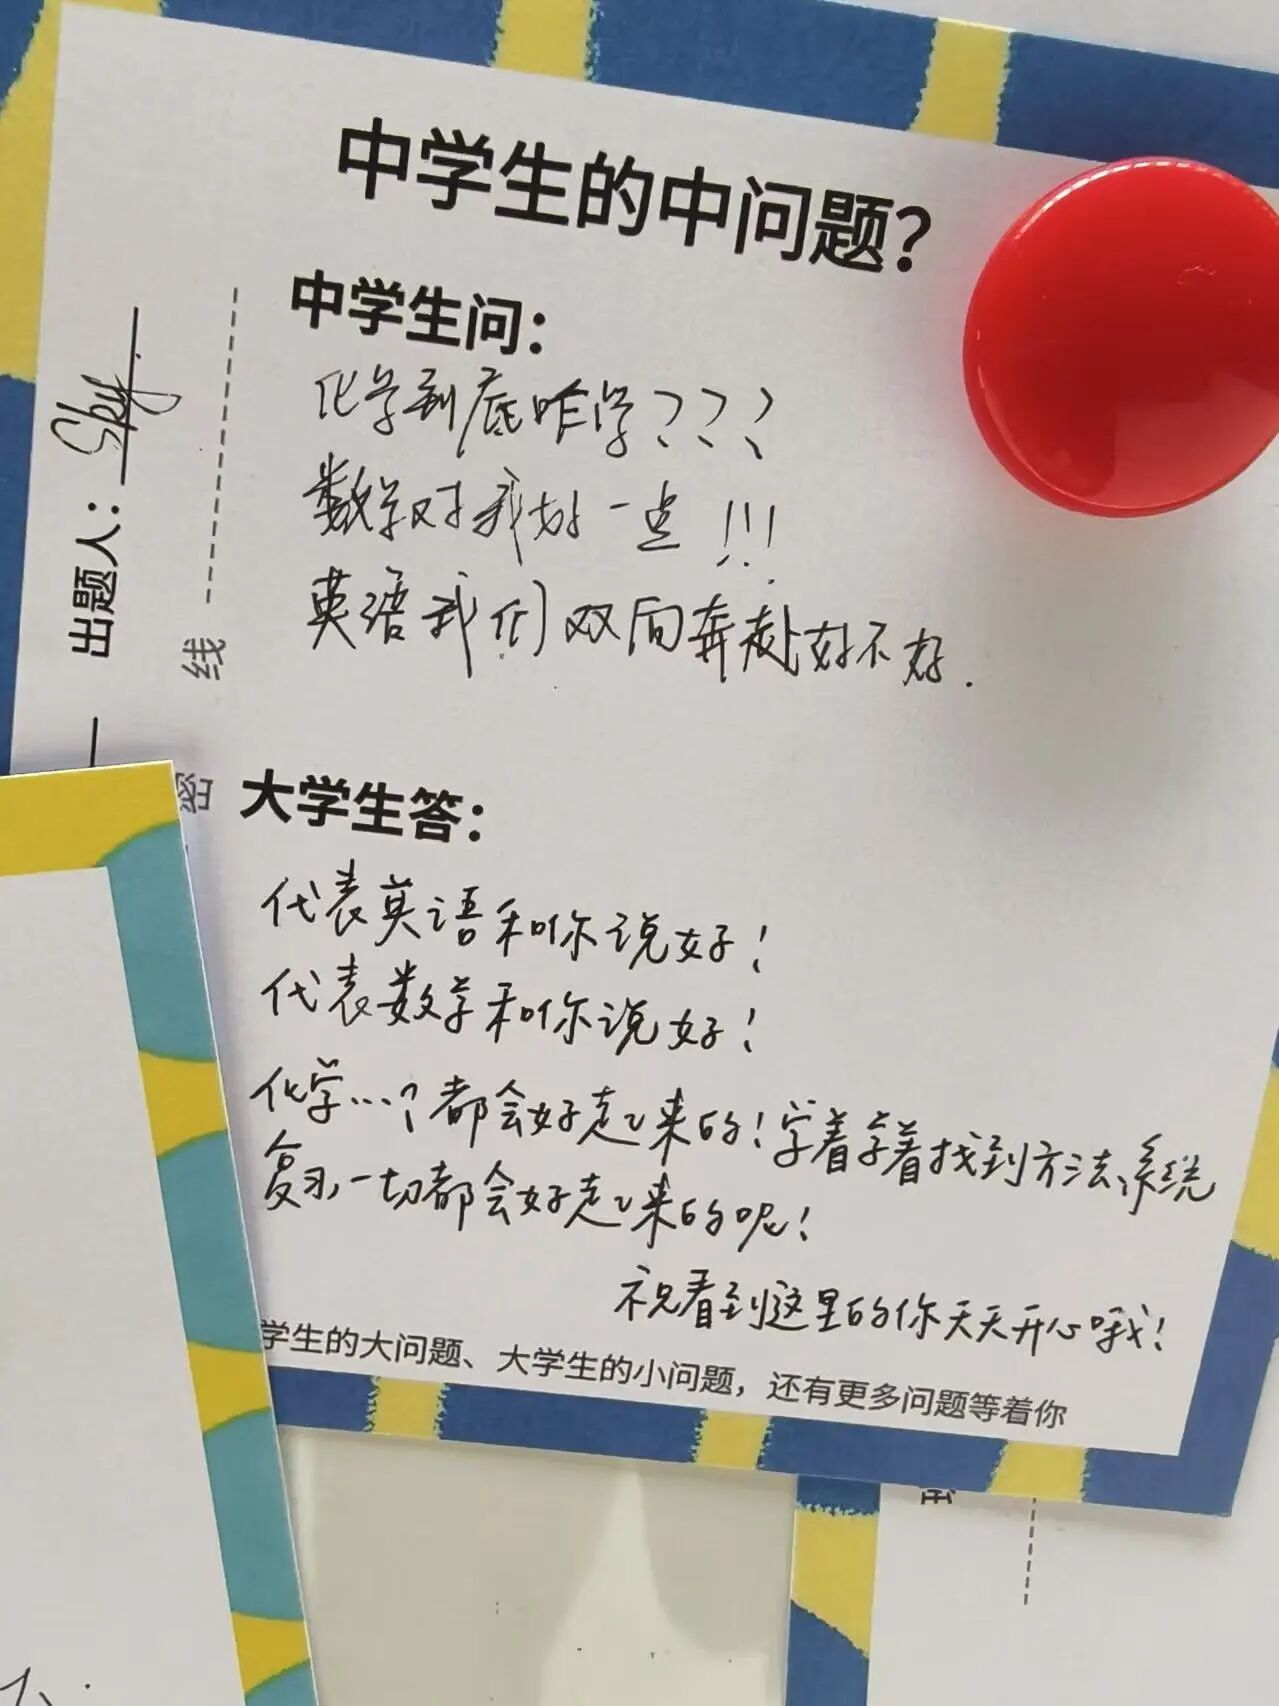 中学生的中问题？
中学生问：
化学到底咋学？？？
数学对我好一点！！！
英语我们双向奔赴好不好.
出题人：Sky
线
密
大学生答：
代表英语和你说好！
代表数学和你说好！
化学…，都会好起来的！学着学着找到方法、系统
复习，一切都会好起来的呢！
祝看到这里的你天天开心哦！
学生的大问题、大学生的小问题，还有更多问题等着你